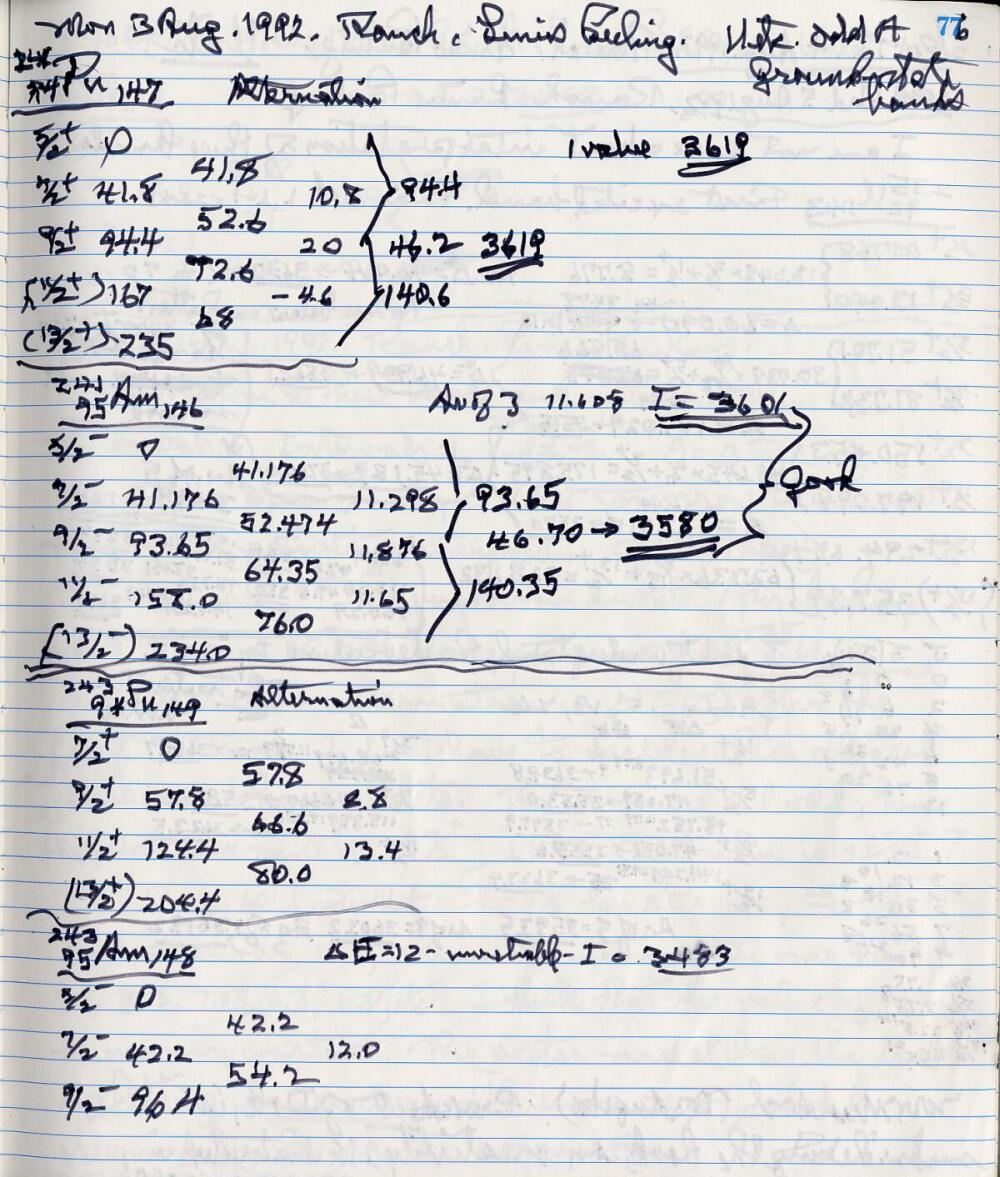 Mon 3 Aug. 1992. Ranch. Linus Pauling. Hvk. odd A 776
Ground state bands
241
94 Pu 147 Alternation
5/2+ 0 1 value 3619
41.8
7/2+ 41.8 10.8 94.4
52.6
9/2+ 94.4 20 46.2 3619
72.6
(11/2+) 167 -4.6 140.6
68
(13/2+) 235
241
95 Am 146 Av of 3 11.608 I = 3601
5/2- 0
41.176
7/2- 41.176 11.298 93.65 Good
52.474
9/2- 93.65 11.876 46.70 → 3580
64.35
11/2- 158.0 11.65 140.35
76.0
(13/2-) 234.0
243
94 Pu 149 Alternation
7/2+ 0
57.8
9/2+ 57.8 8.8
66.6
11/2+ 124.4 13.4
80.0
(13/2+) 204.4
243
95 Am 148 ΔE=12 - - I = 3483
5/2- 0
42.2
7/2- 42.2 12.0
54.2
9/2- 96.4